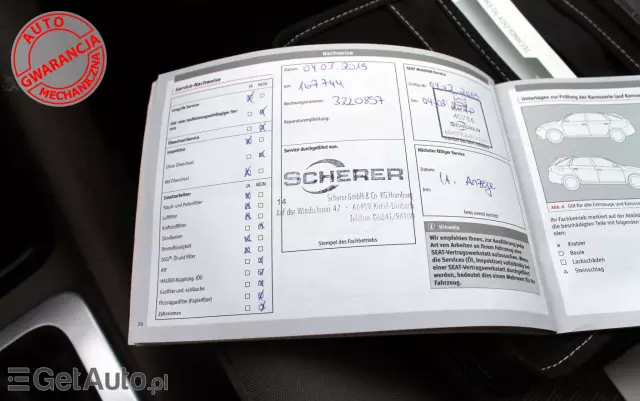 AUTO
GWARANCJA
MECHANICZNA
Nachweise
Service-Nachweise
JA NEIN
Ölwechsel-Service
Inspektion
Ohne Ölwechsel
Mit Ölwechsel
Zusatzarbeiten:
JA NEIN
Staub- und Pollenfilter
Luftfilter
Kraftstofffilter
Zündkerzen
Bremsflüssigkeit
DSG®: Öl und Filter
ATF
HALDEX-Kupplung: (Öl)
Gasfilter und -schläuche
Flüssiggasfilter (Papierfilter)
Zahnriemen
26
Datum:
04.03.2019
km:
147744
Rechnungsnummer:
3220857
Reparaturempfehlung:
Service durchgeführt von:
SCHERER
14
Scherer GmbH & Co. KG Homburg
Telefon 06841/98100
Stempel des Fachbetriebs
SEAT Mobilität-Service
04.03.2019
Nächster fälliger Service
km:
lt. Anzeige
(was zuerst eintritt)
i Hinweis
Wir empfehlen Ihnen, zur Ausführung jeder
Art von Arbeiten an Ihrem Fahrzeug eine
SEAT-Vertragswerkstatt aufzusuchen. Wenn
die Services (Öl, Inspektion) vollständig bei
einer SEAT-Vertragswerkstatt durchgeführt
werden, bedeutet dies einen Mehrwert für Ihr
Fahrzeug.
Unterlagen zur Prüfung der Karosserie (auf Korros
Abb. 6 Gilt für alle Fahrzeuge und Karosse
Ihr Fachbetrieb markiert auf der Abbild
die beschädigten Teile mit folgenden
x Kratzer
○ Beule
□ Lackschäden
△ Steinschlag
GetAuto.pl